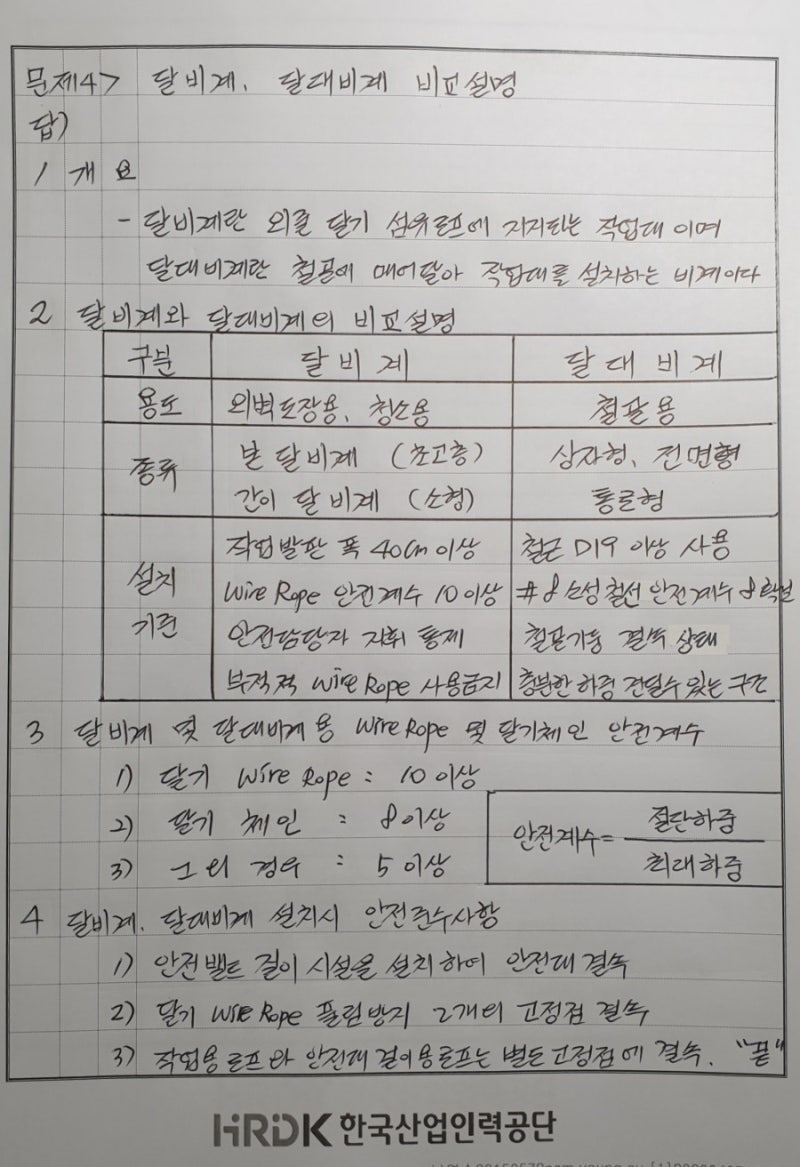 문제4> 달비계, 달대비계 비교설명
답)
1 개요
- 달비계란 외줄 달기 섬유로프에 지지되는 작업대 이며
달대비계란 철골에 매어달아 작업대를 설치하는 비계이다
2 달비계와 달대비계의 비교설명
구분 달비계 달대비계
용도 외벽도장용, 청소용 철골용
종류 본 달비계 (초고층) 상자형, 전면형
간이 달비계 (소형) 통로형
설치 기준 작업발판 폭 40cm 이상 철근 D19 이상 사용
Wire Rope 안전계수 10 이상 #8 소성철선 안전계수 8 확보
안전담당자 지휘 통제 철골기둥 결속 상태
부적격 Wire Rope 사용금지 충분한 하중 견딜수 있는 구조
3 달비계 및 달대비계용 Wire Rope 및 달기체인 안전계수
1) 달기 Wire Rope : 10 이상
2) 달기 체인 : 8 이상
3) 그 외 경우 : 5 이상
안전계수= 절단하중
최대하중
4 달비계, 달대비계 설치시 안전준수사항
1) 안전밸트 걸이 시설을 설치하여 안전대 결속
2) 달기 Wire Rope 풀림방지 2개의 고정점 결속
3) 작업용로프와 안전대 걸이용로프는 별도고정점에 결속. "끝"
HRDK 한국산업인력공단